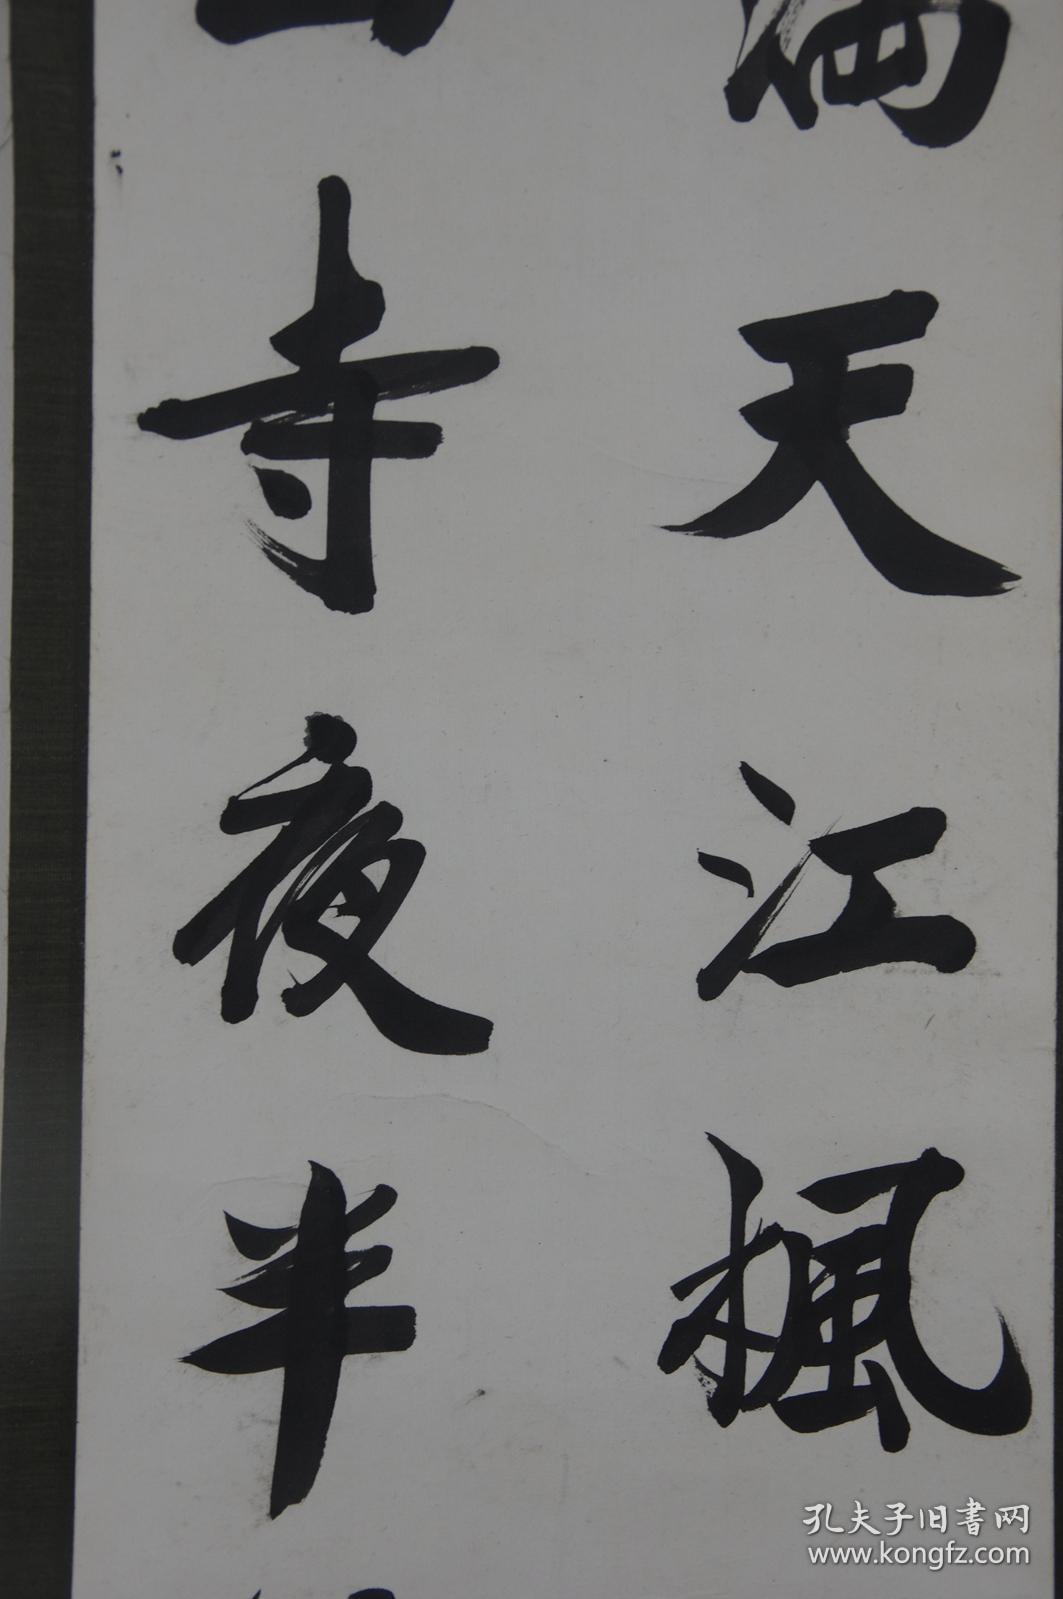 天江楓
寺夜半
孔夫子旧書网
www.kongfz.com